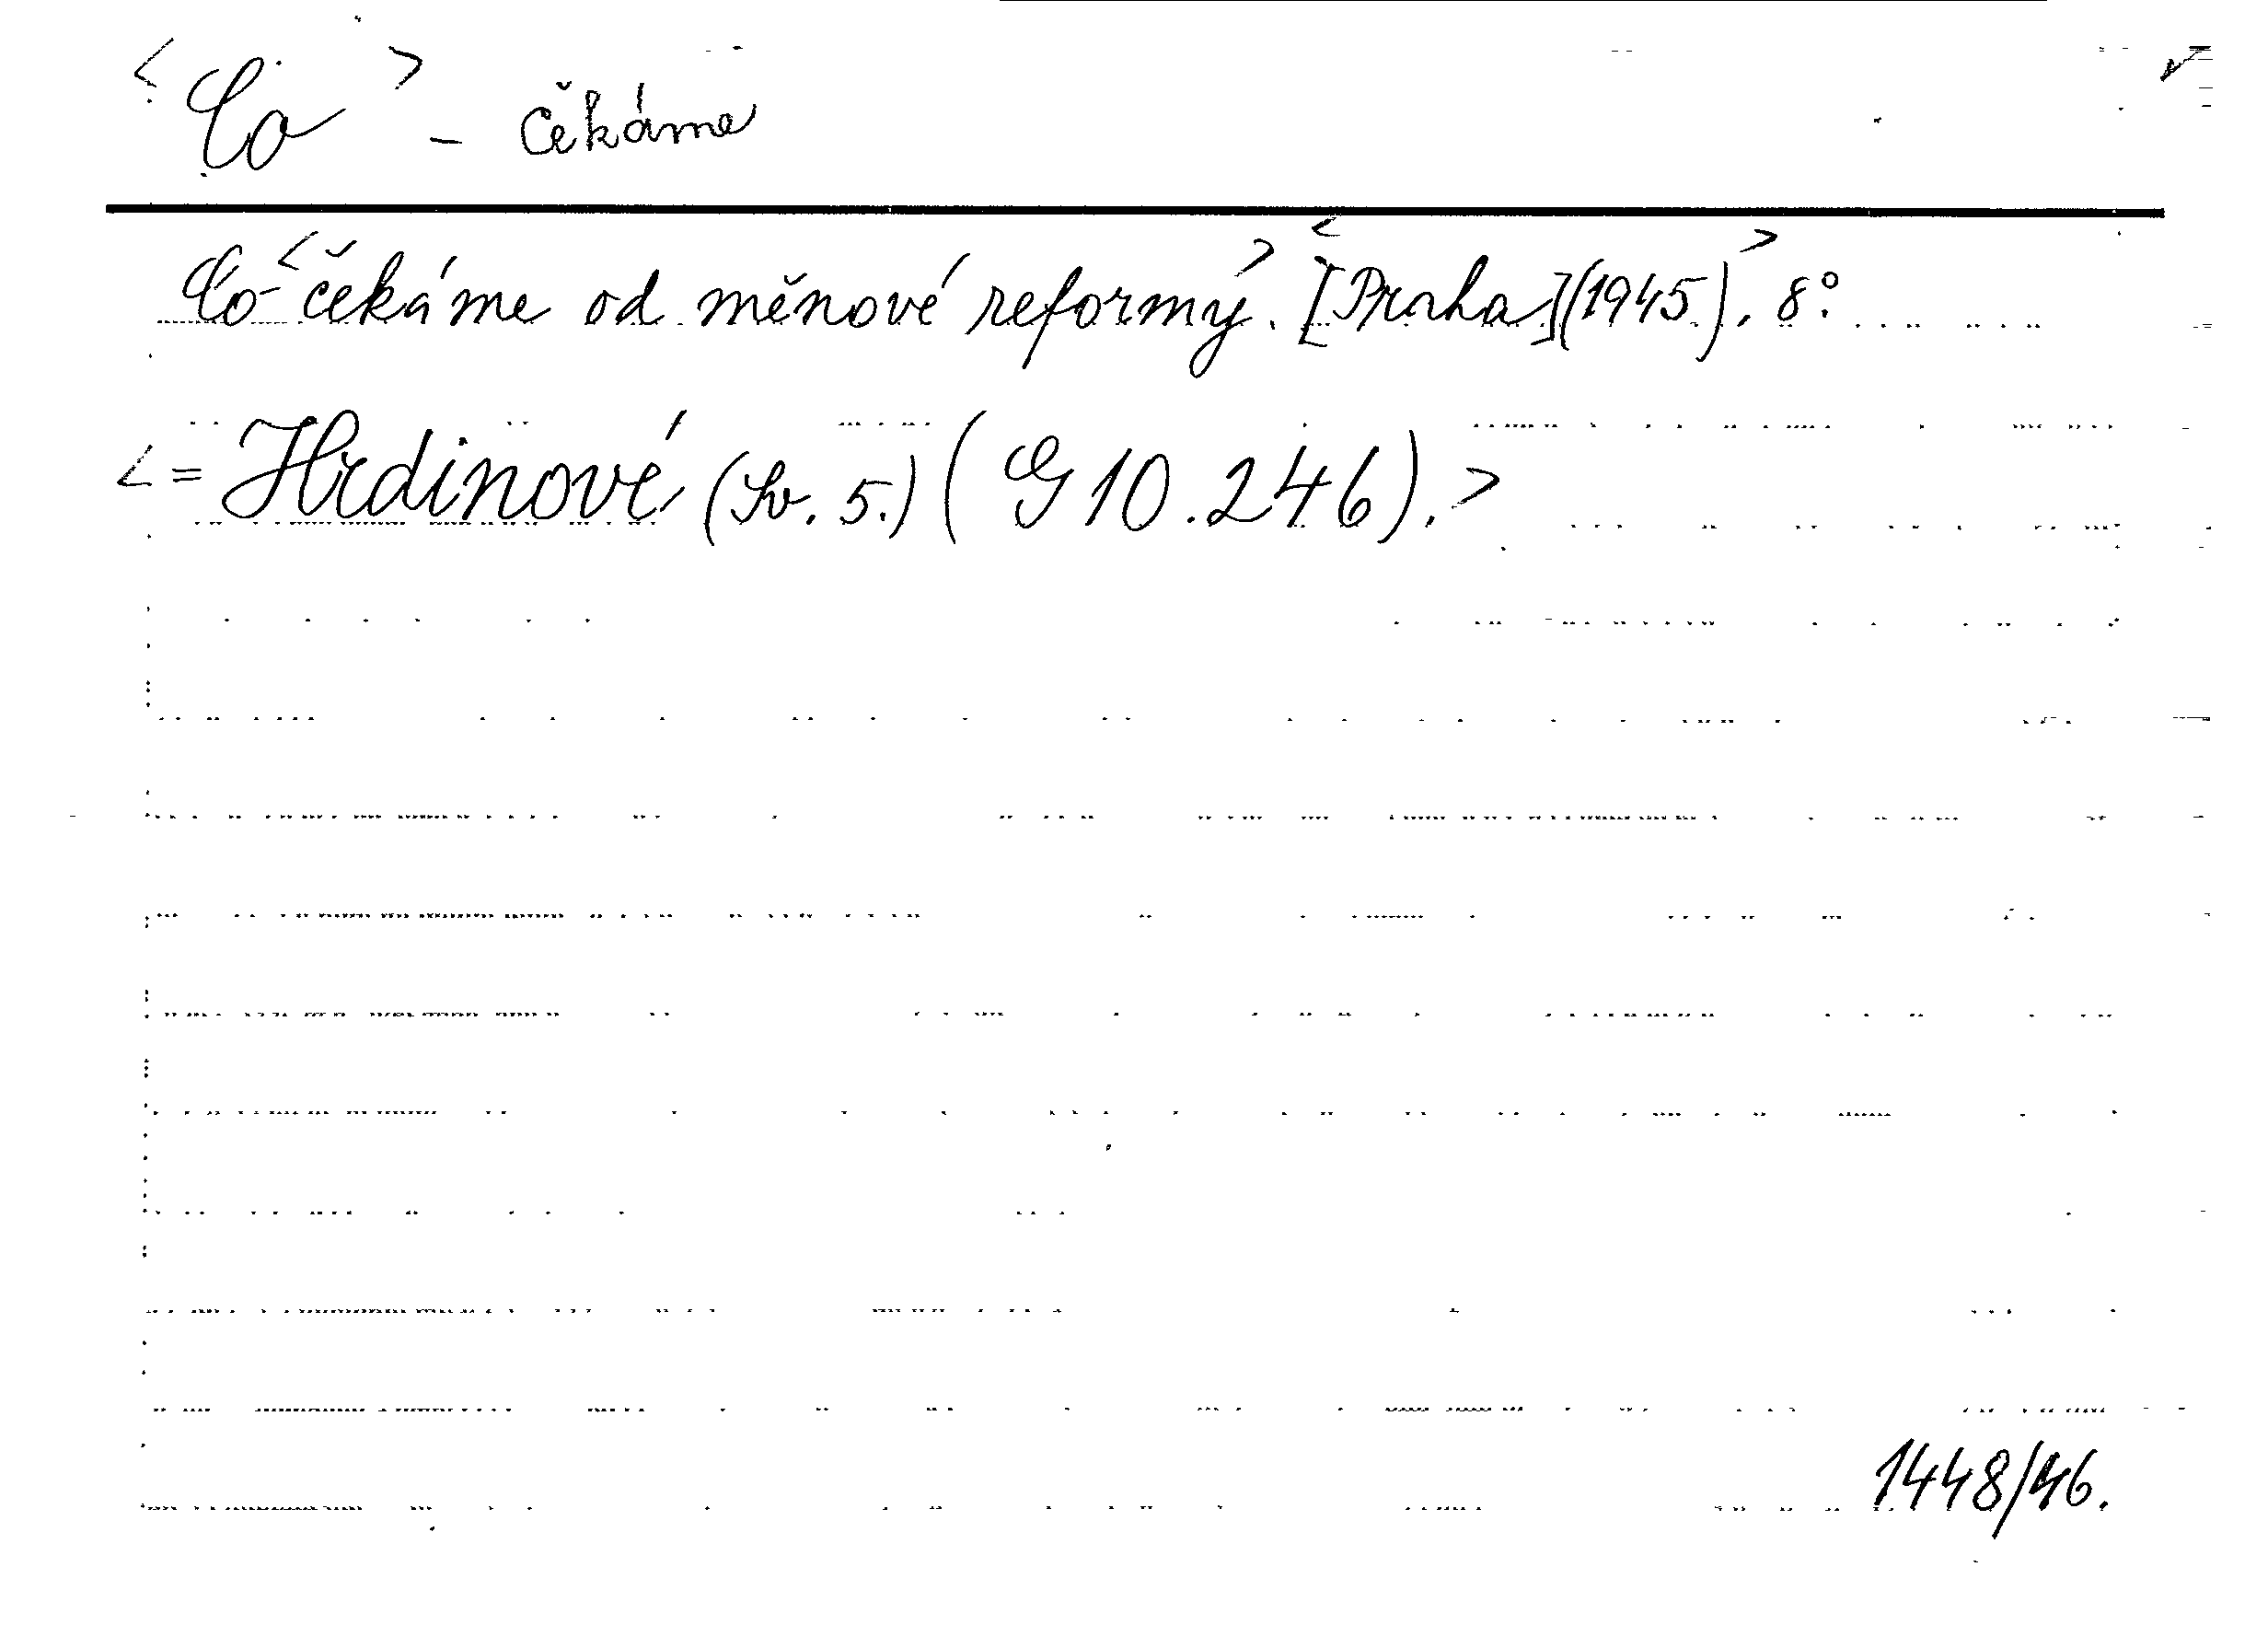 <Co> - čekáme
Co <čekáme od měnové reformy.> <[Praha](1945).> 8°.
<= Hrdinové (Sv. 5.) (G 10.246).>
1448/46.